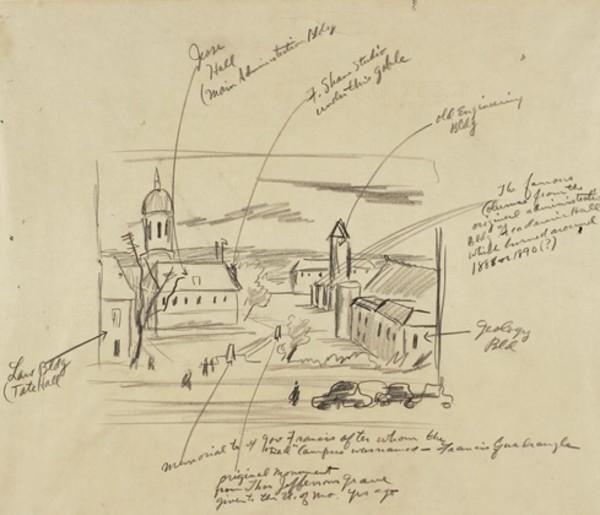 Jesse
Hall
(Main Administration Bldg
F. Shane Studio
under this gable
old Engineering
Bldg
The famous
Columns from the
original administrat
Bldg of Academic Hall
while burned around
1888 or 1890 (?)
Geology
Bld
Law Bldg
(Tate Hall
memorial to Gov Francis after whom the
"Red" Campus was named — Francis Quadrangle
original monument
from Thos Jeffersons Grave
given to the U. of Mo. yrs ago